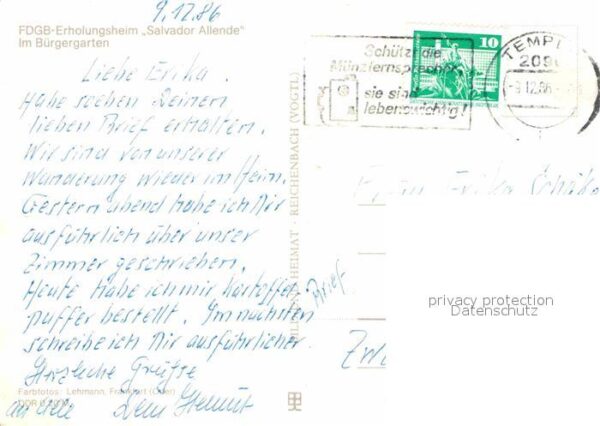 9.12.86
FDGB-Erholungsheim „Salvador Allende"
Im Bürgergarten
Liebe Erika.
Habe soeben Deinen
lieben Brief erhalten.
Wir sind von unserer
Wanderung wieder im Heim.
Gestern abend habe ich Dir
ausführlich über unser
Zimmer geschrieben.
Heute habe ich mir Kartoffel-
puffer bestellt. Im nächsten Brief
schreibe ich Dir ausführlicher.
Herzliche Grüße
an alle Dein Helmut
Farbfotos: Lehmann, Frankfurt (Oder)
DDR
HEIMAT · REICHENBACH (VOGTL)
Schützt die
Münzfernsprecher,
sie sind
lebenswichtig!
10
TEMPLIN
2090
-9.12.86
Frau Erika
privacy protection
Datenschutz